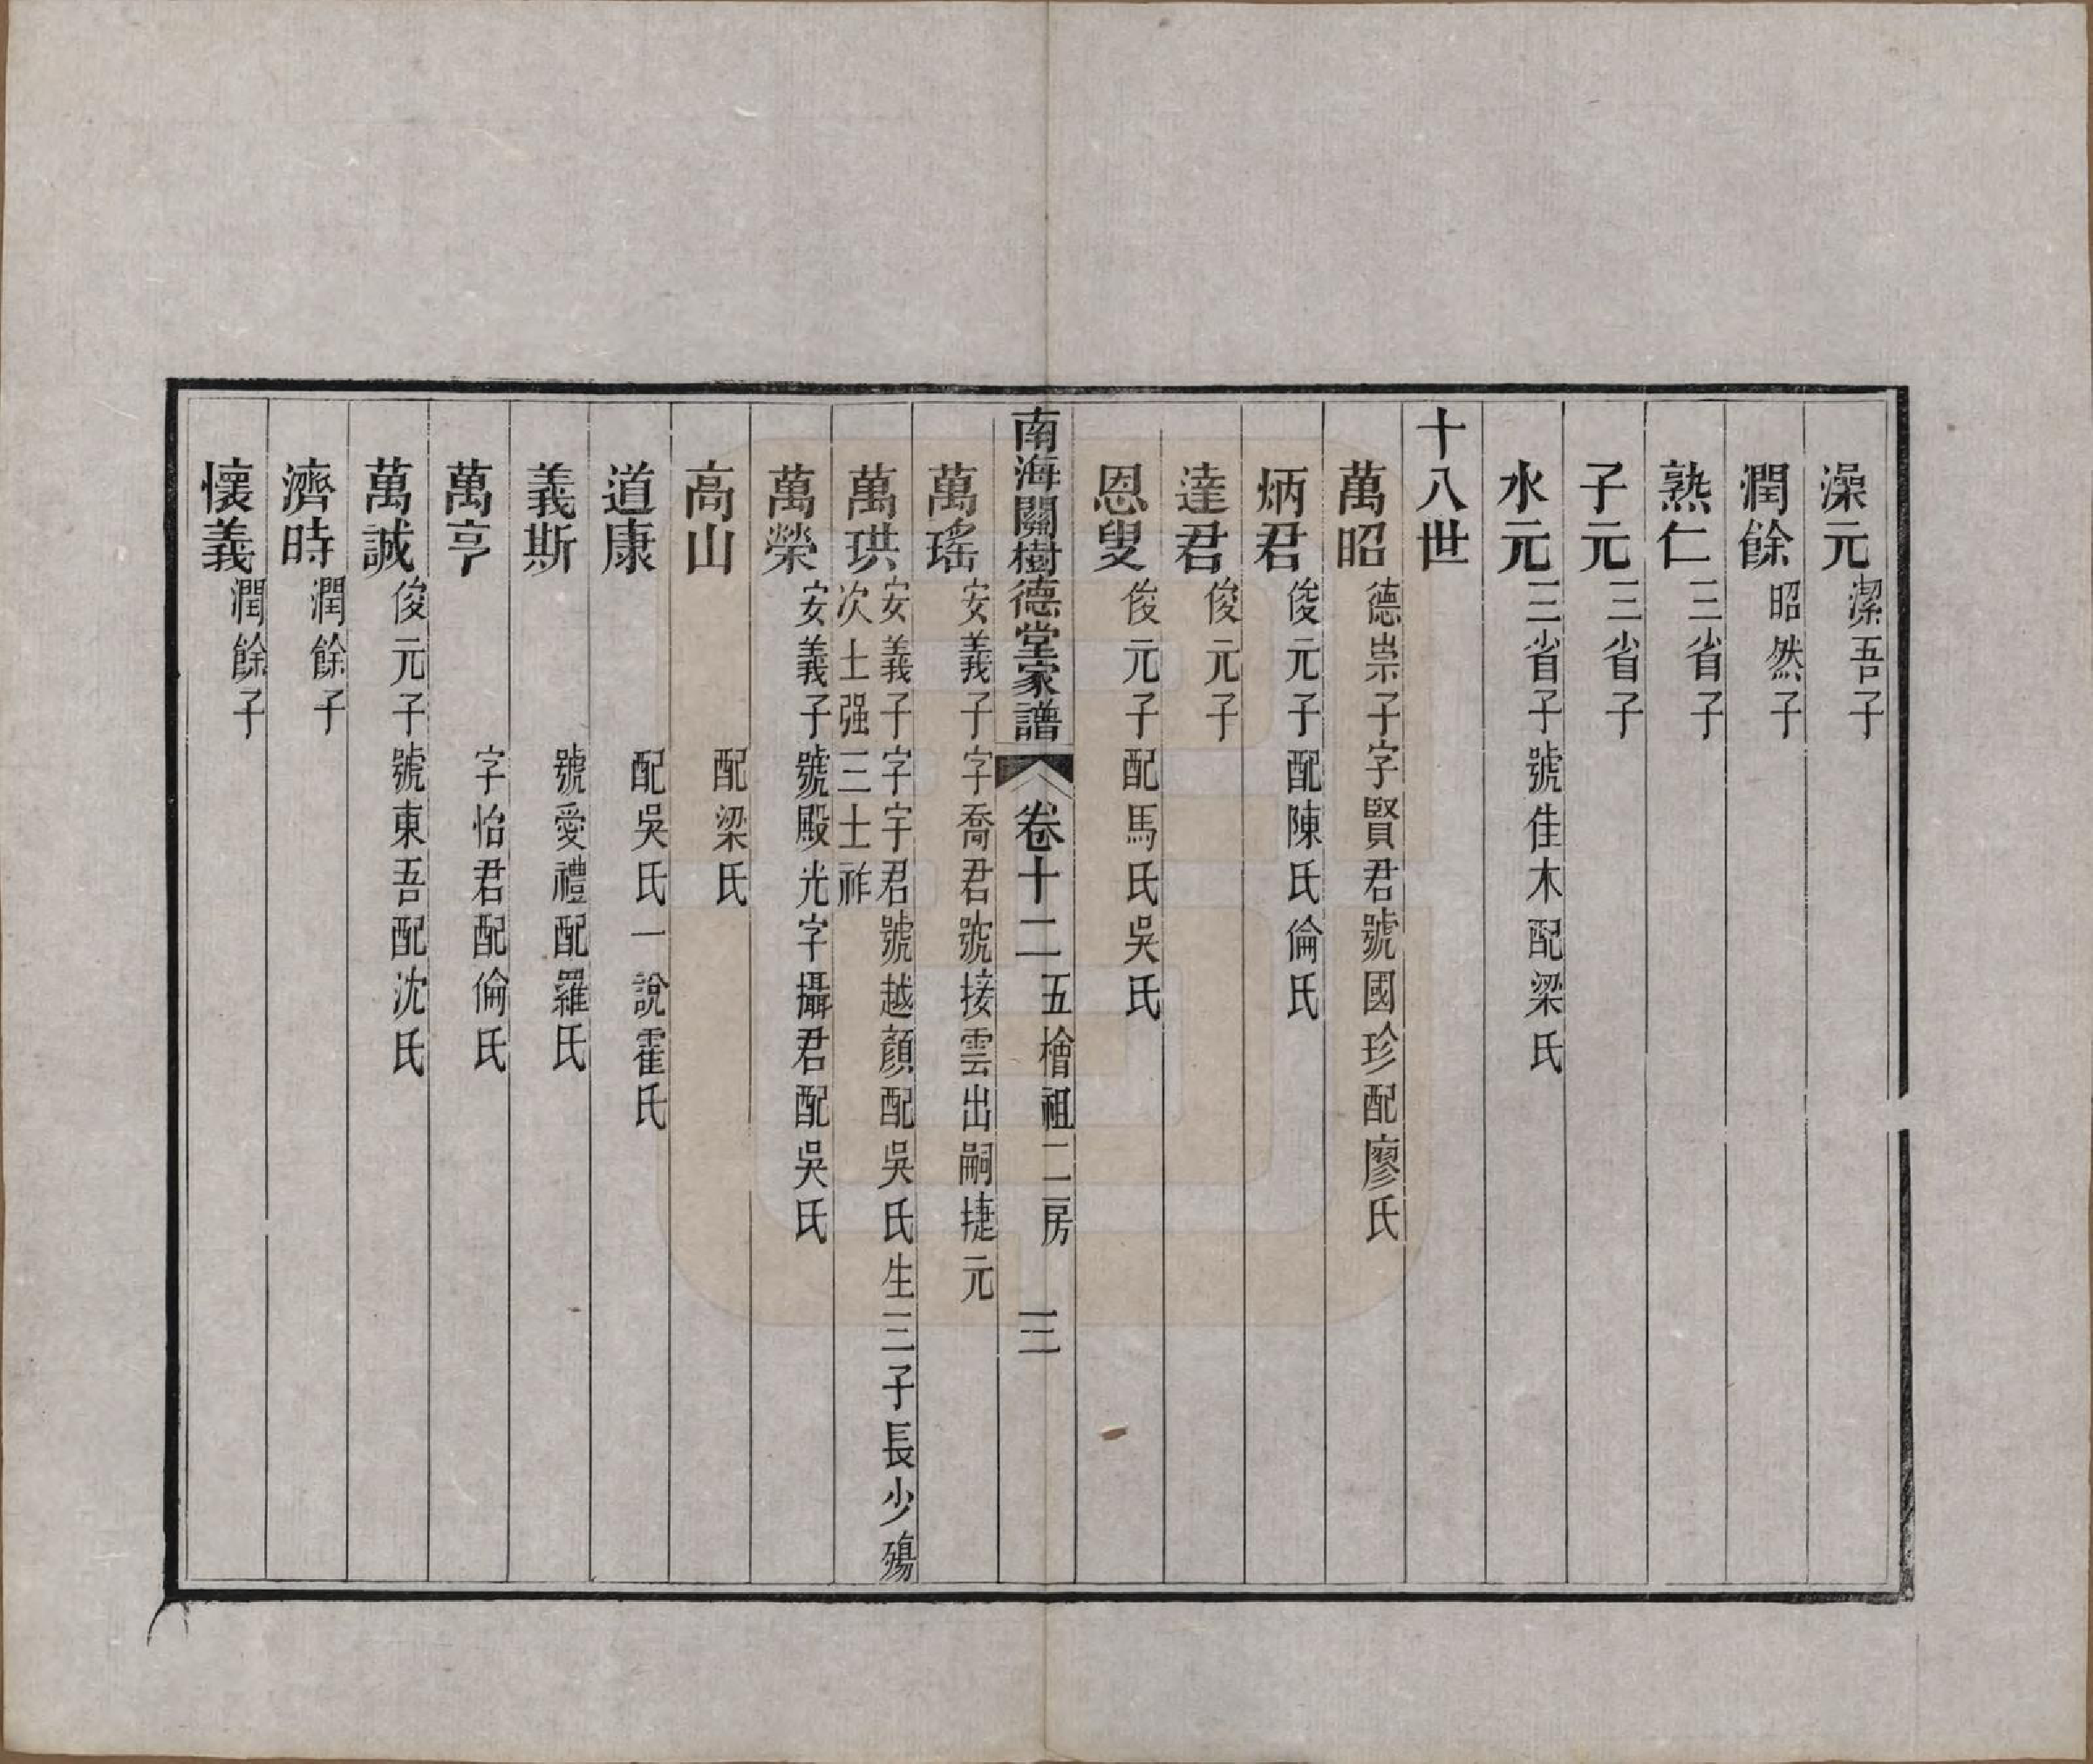 澡元潔吾子
潤餘昭然子
熟仁三省子
子元三省子
水元三省子號佳木配梁氏
十八世
萬昭德崇子字賢君號國珍配廖氏
炳君俊元子配陳氏倫氏
達君俊元子
恩叟俊元子配馬氏吳氏
南海關樹德堂家譜 卷十二 五檜祖二房 三
萬瑤安義子字喬君號接雲出嗣捷元
萬珙安義子字宇君號越顏配吳氏生三子長少殤
次士强三士祚
萬榮安義子號殿光字攝君配吳氏
高山 配梁氏
道康 配吳氏一說霍氏
義斯 號愛禮配羅氏
萬亨 字怡君配倫氏
萬誠俊元子號東吾配沈氏
濟時潤餘子
懷義潤餘子